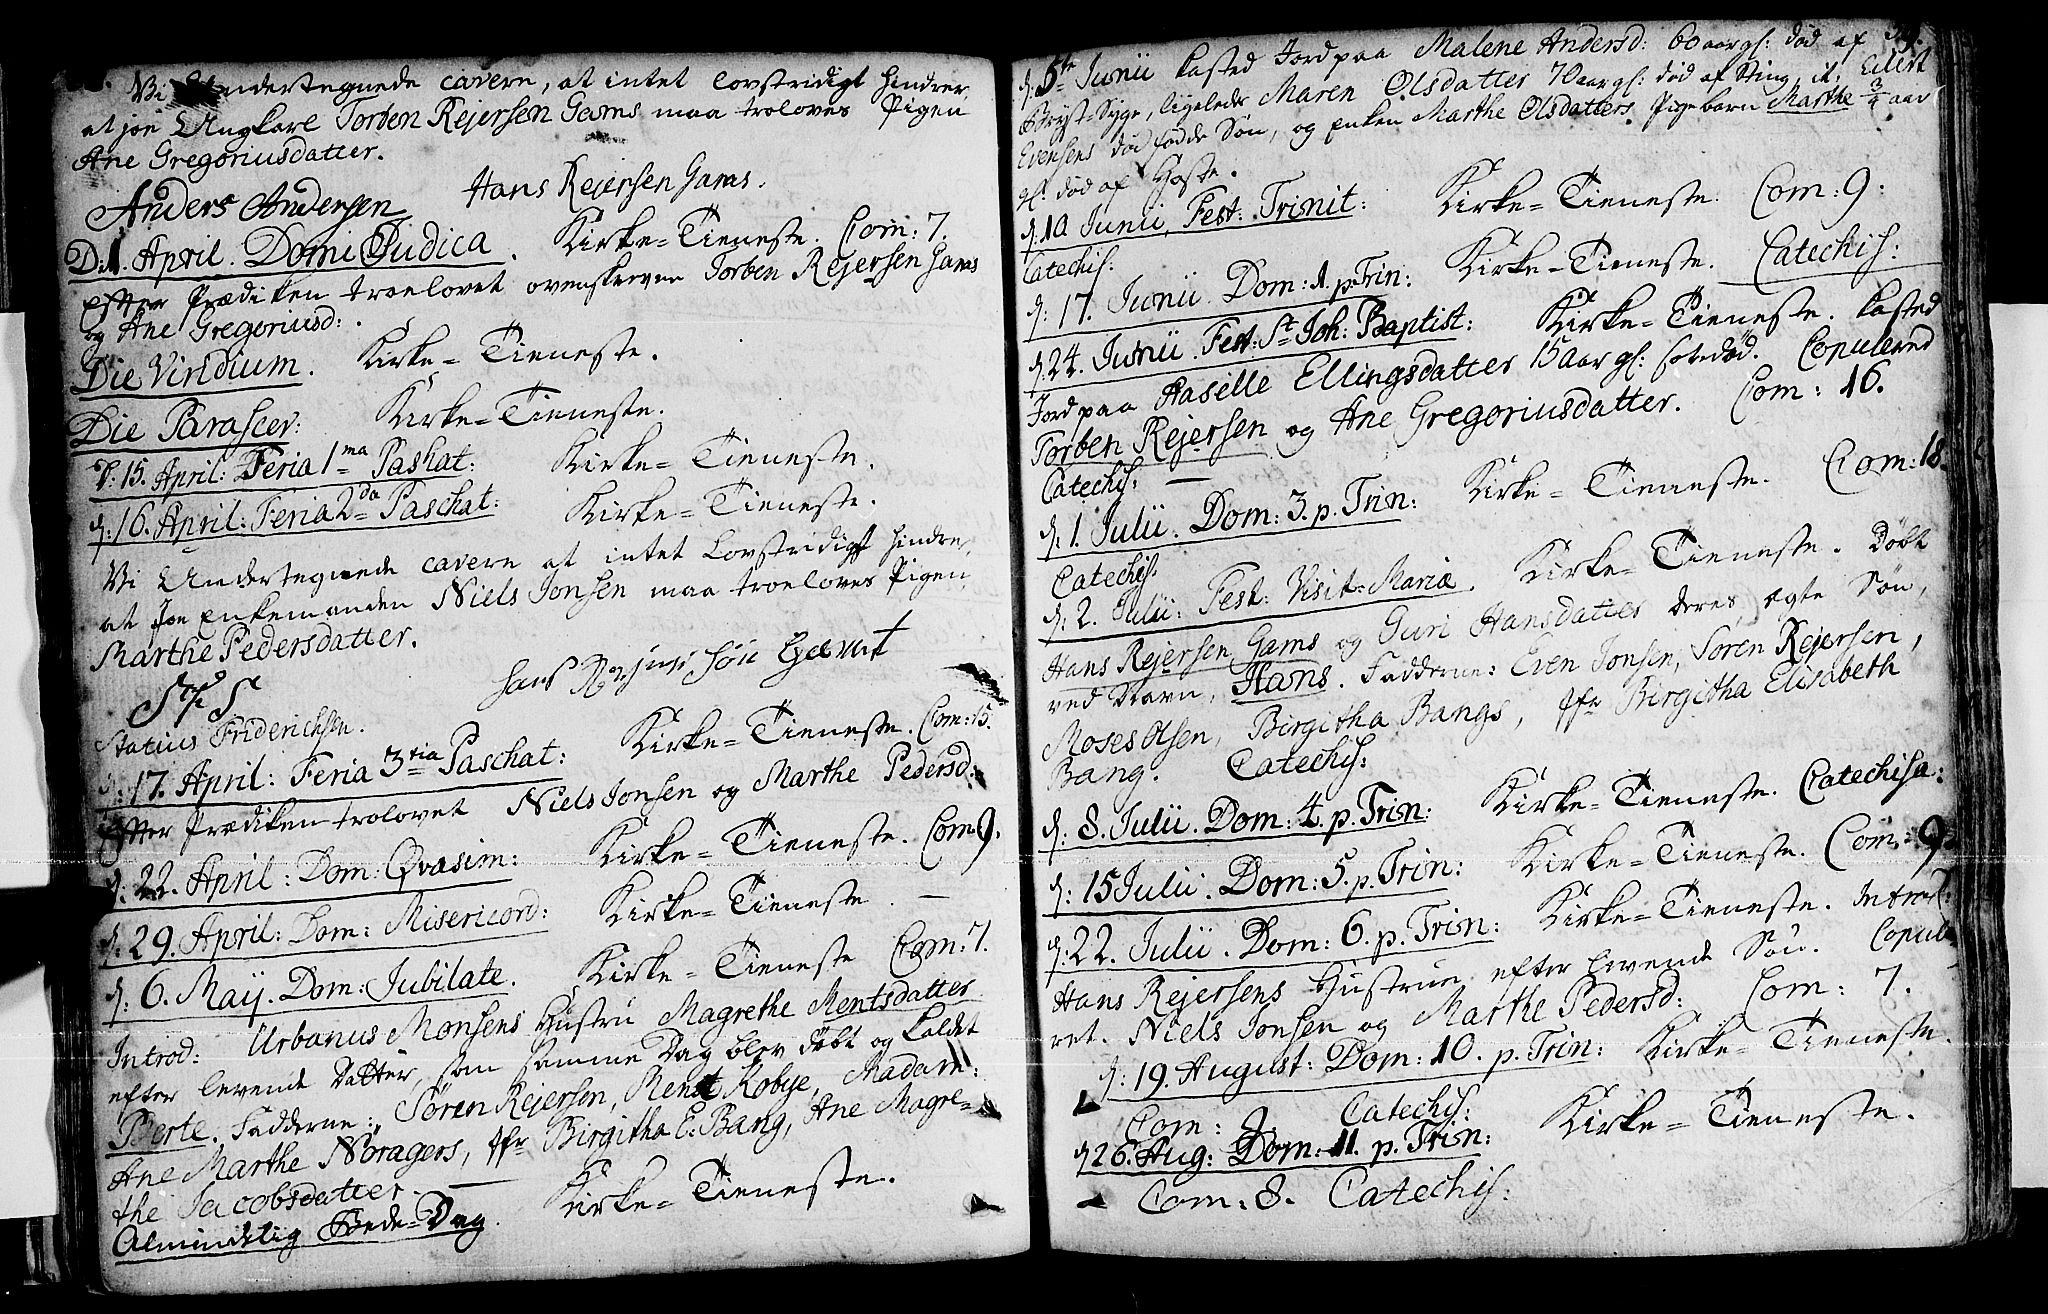 Vi Undertegnede cavere, at intet lovstridigt hindrer
at jo Ungkarl Torben Rejersen Gams maa troloves Pigen
Ane Gregoriusdatter.
Anders Andersen Hans Rejersen Gams.
D: 1. April. Domi Judica. Kirke=Tieneste. Com: 7.
Efter Prædiken troelovet ovenskrevne Torben Rejersen Gams
og Ane Gregoriusd:
Die Viridium. Kirke=Tieneste.
Die Parascev: Kirke=Tieneste.
d: 15. April: Feria 1ma Paskat: Kirke=Tieneste.
d: 16. April: Feria 2da Paschat: Kirke=Tieneste.
Vi Undertegnede cavere at intet Lovstridigt hindrer,
at jo Enkemanden Niels Jonsen maa troeloves Pigen
Marthe Pedersdatter.
SFS
Statius Friderichsen.
d: 17. April: Feria 3tia Paschat: Kirke=Tieneste. Com: 15.
Efter Prædiken trolovet Niels Jonsen og Marthe Pedersd:
d: 22. April: Dom: Qvasim: Kirke=Tieneste. Com 9.
d: 29. April: Dom: Misericord: Kirke=Tieneste. —
d: 6. Maij. Dom: Jubilate. Kirke=Tieneste Com: 7.
Introd: Urbanus Monsens Hustru Magrethe Mentsdatter
efter levende Datter, som samme Dag blev døbt og kaldet
Berte. Fadderne: Søren Rejersen, Rent Kobye, Madam:
Ane Marthe Noragers, Jfr Birgitha E: Bang, Ane Magre=
the Jacobsdatter. —
Almindelig Bede=Dag. Kirke=Tieneste.
d: 5te Junii kasted Jord paa Malene Andersd: 60 aar gl: død af
Bryst=Syge, ligeleds Maren Olsdatter 70 aar gl: død af Sting, it: Eilert
Evensens død fødde Søn, og Enken Marthe Olsdatters Pigebarn Marthe 3/4 aar
gl: død af Hoste.
d: 10 Junii, Fest: Trinit: Kirke=Tieneste. Com: 9:
Catechis:
d: 17. Junii. Dom: 1. p. Trin: Kirke=Tieneste. Catechis:
d: 24. Junii. Fest: St Joh: Baptist: Kirke=Tieneste. kasted
Jord paa Paselle Ellingsdatter 15 Aar gl: sotedød. Copulered
Torben Rejersen og Ane Gregoriusdatter. Com: 16.
Catechis: —
d: 1. Julii. Dom: 3. p. Trin: Kirke=Tieneste. Com: 18.
Catechis:
d: 2. Julii: Fest: Visit: Mariæ. Kirke=Tieneste. Døbt
Hans Rejersen Gams og Guri Hansdatter deres ægte Søn,
ved Navn, Hans. Fadderne: Even Jonsen, Søren Rejersen,
Moses Olsen, Birgitha Bangs, Jfr Birgitha Elisabeth
Bang. Catechis:
d: 8. Julii. Dom: 4. p. Trin: Kirke=Tieneste. Catechisa:
d: 15 Julii. Dom: 5. p. Trin: Kirke=Tieneste. Com: 9.
d: 22. Julii. Dom: 6. p. Trin: Kirke=Tieneste. Introd:
Hans Rejersens Hustrue efter levende Søn. Copule
ret. Niels Jonsen og Marthe Pedersd: Com: 7.
d: 19. August: Dom: 10. p. Trin: Kirke=Tieneste.
Com: 9. Catechis:
d 26. Aug: Dom: 11. p. Trin: Kirke=Tieneste.
Com: 8. Catechis: